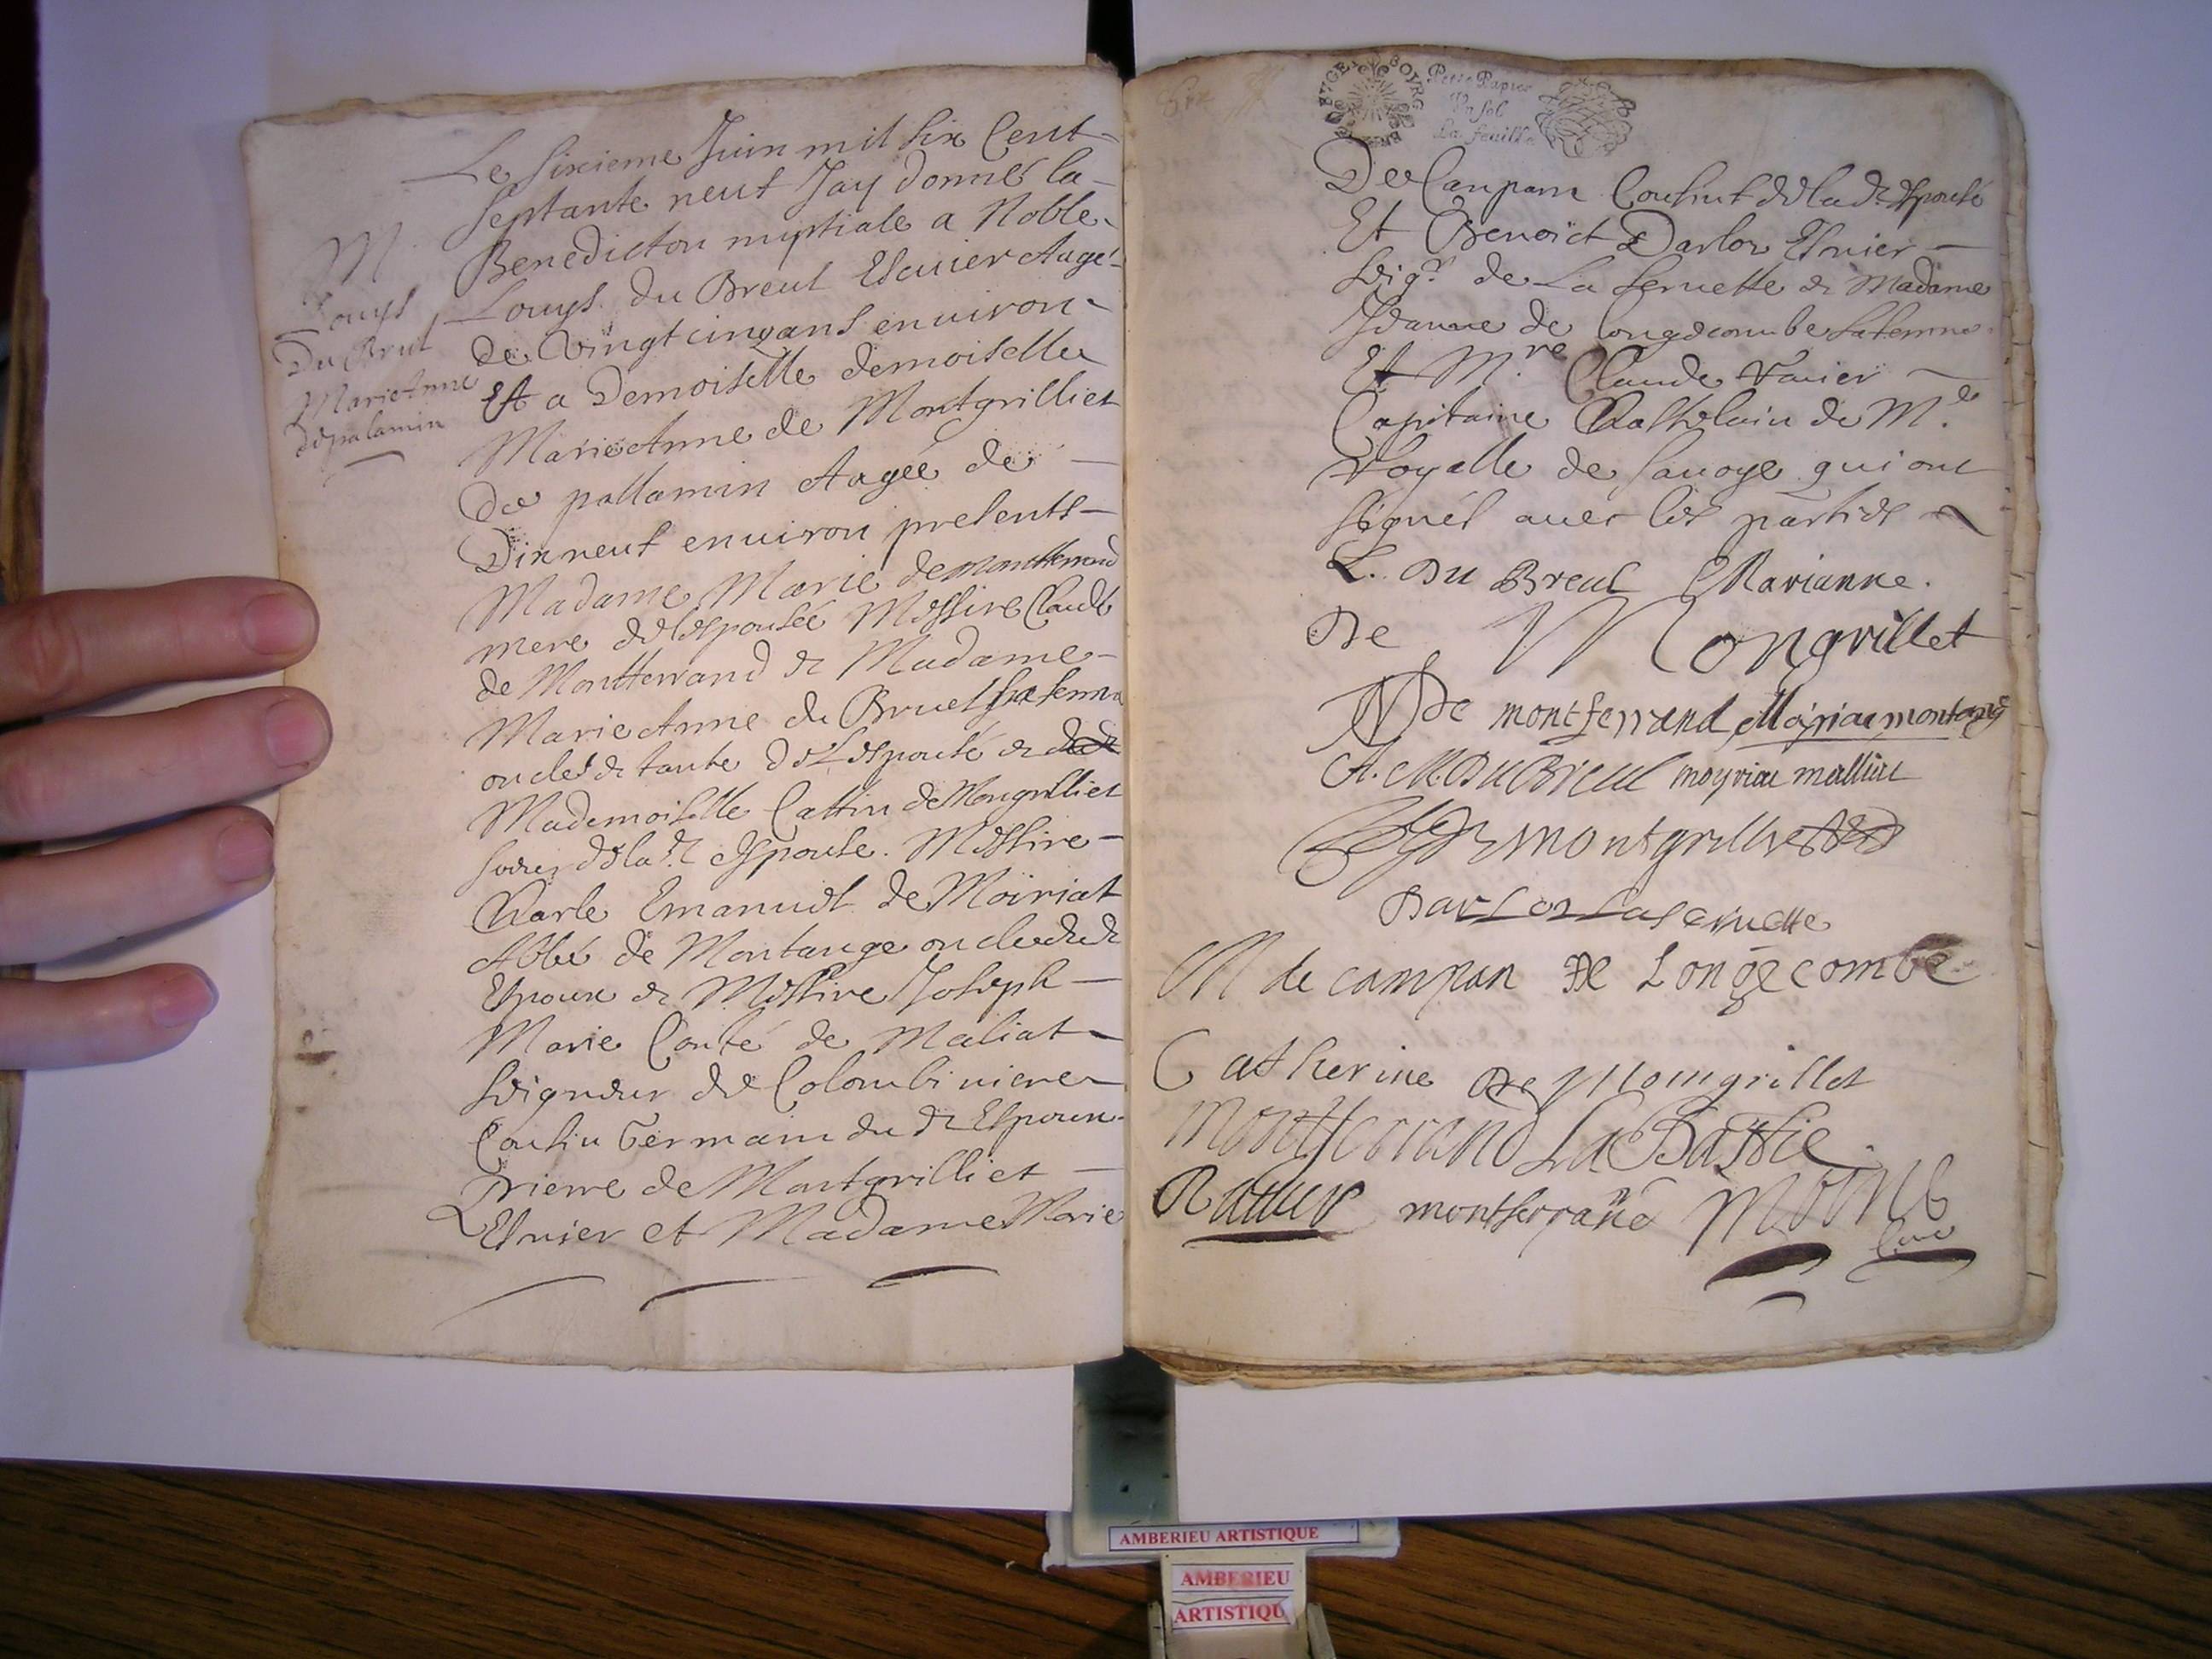 M
Louys
Du Brul
Marie Anne
de palamin
Le sixieme Juin mil six Cent
septante neuf Jay donné la
Benediction nuptiale a Noble
Louys du Breul Escuier Aagé
de vingt cinq ans environ
Et a Demoiselle demoiselle
Marie Anne de Montgrilliet
De pallamin Aagée de
Dixneuf environ presents
Madame Marie de montferrand
mere de lespousée Messire Claude
de Montferrand & Madame
Marie Anne du Bruel sa femme
oncles & tante de Lespousé &
Mademoiselle Cattin de Mongrilliet
soeur de la d. espouse. Messire
Charle Emanuel de Moiriat
Abbé de Montange oncle dud
Espoux & Messire Joseph
Marie Conte de Maliat
Seigneur de Colombiniere
Cousin Germain du d Espoux
Prierre de Montgrilliet
Escuier et Madame Marie
BVGEY BOVRG
Petit Papier
Vn sol
La feuille
De Canpam Cousint de la d. Espouse
Et Benoict Darlos Escuier
Seigr de La servette & Madame
Jeanne de Longecombe sa femme
Et Mre Claude Ravier
Capitaine Chastelain de M.e
Royalle de Savoye qui ont
signés avec les parties
L. Du Breul Marianne.
De Mongrillet
De montferrand Moyria montange
A. M. Du Breul moyriac malliac
montgrillet
Darlos Laservette
M de campan De Longecombe
Catherine De Momgrillet
Montferrand La Bastie
Ravier montferrand Moine
Curé
AMBERIEU ARTISTIQUE
AMBERIEU
ARTISTIQU